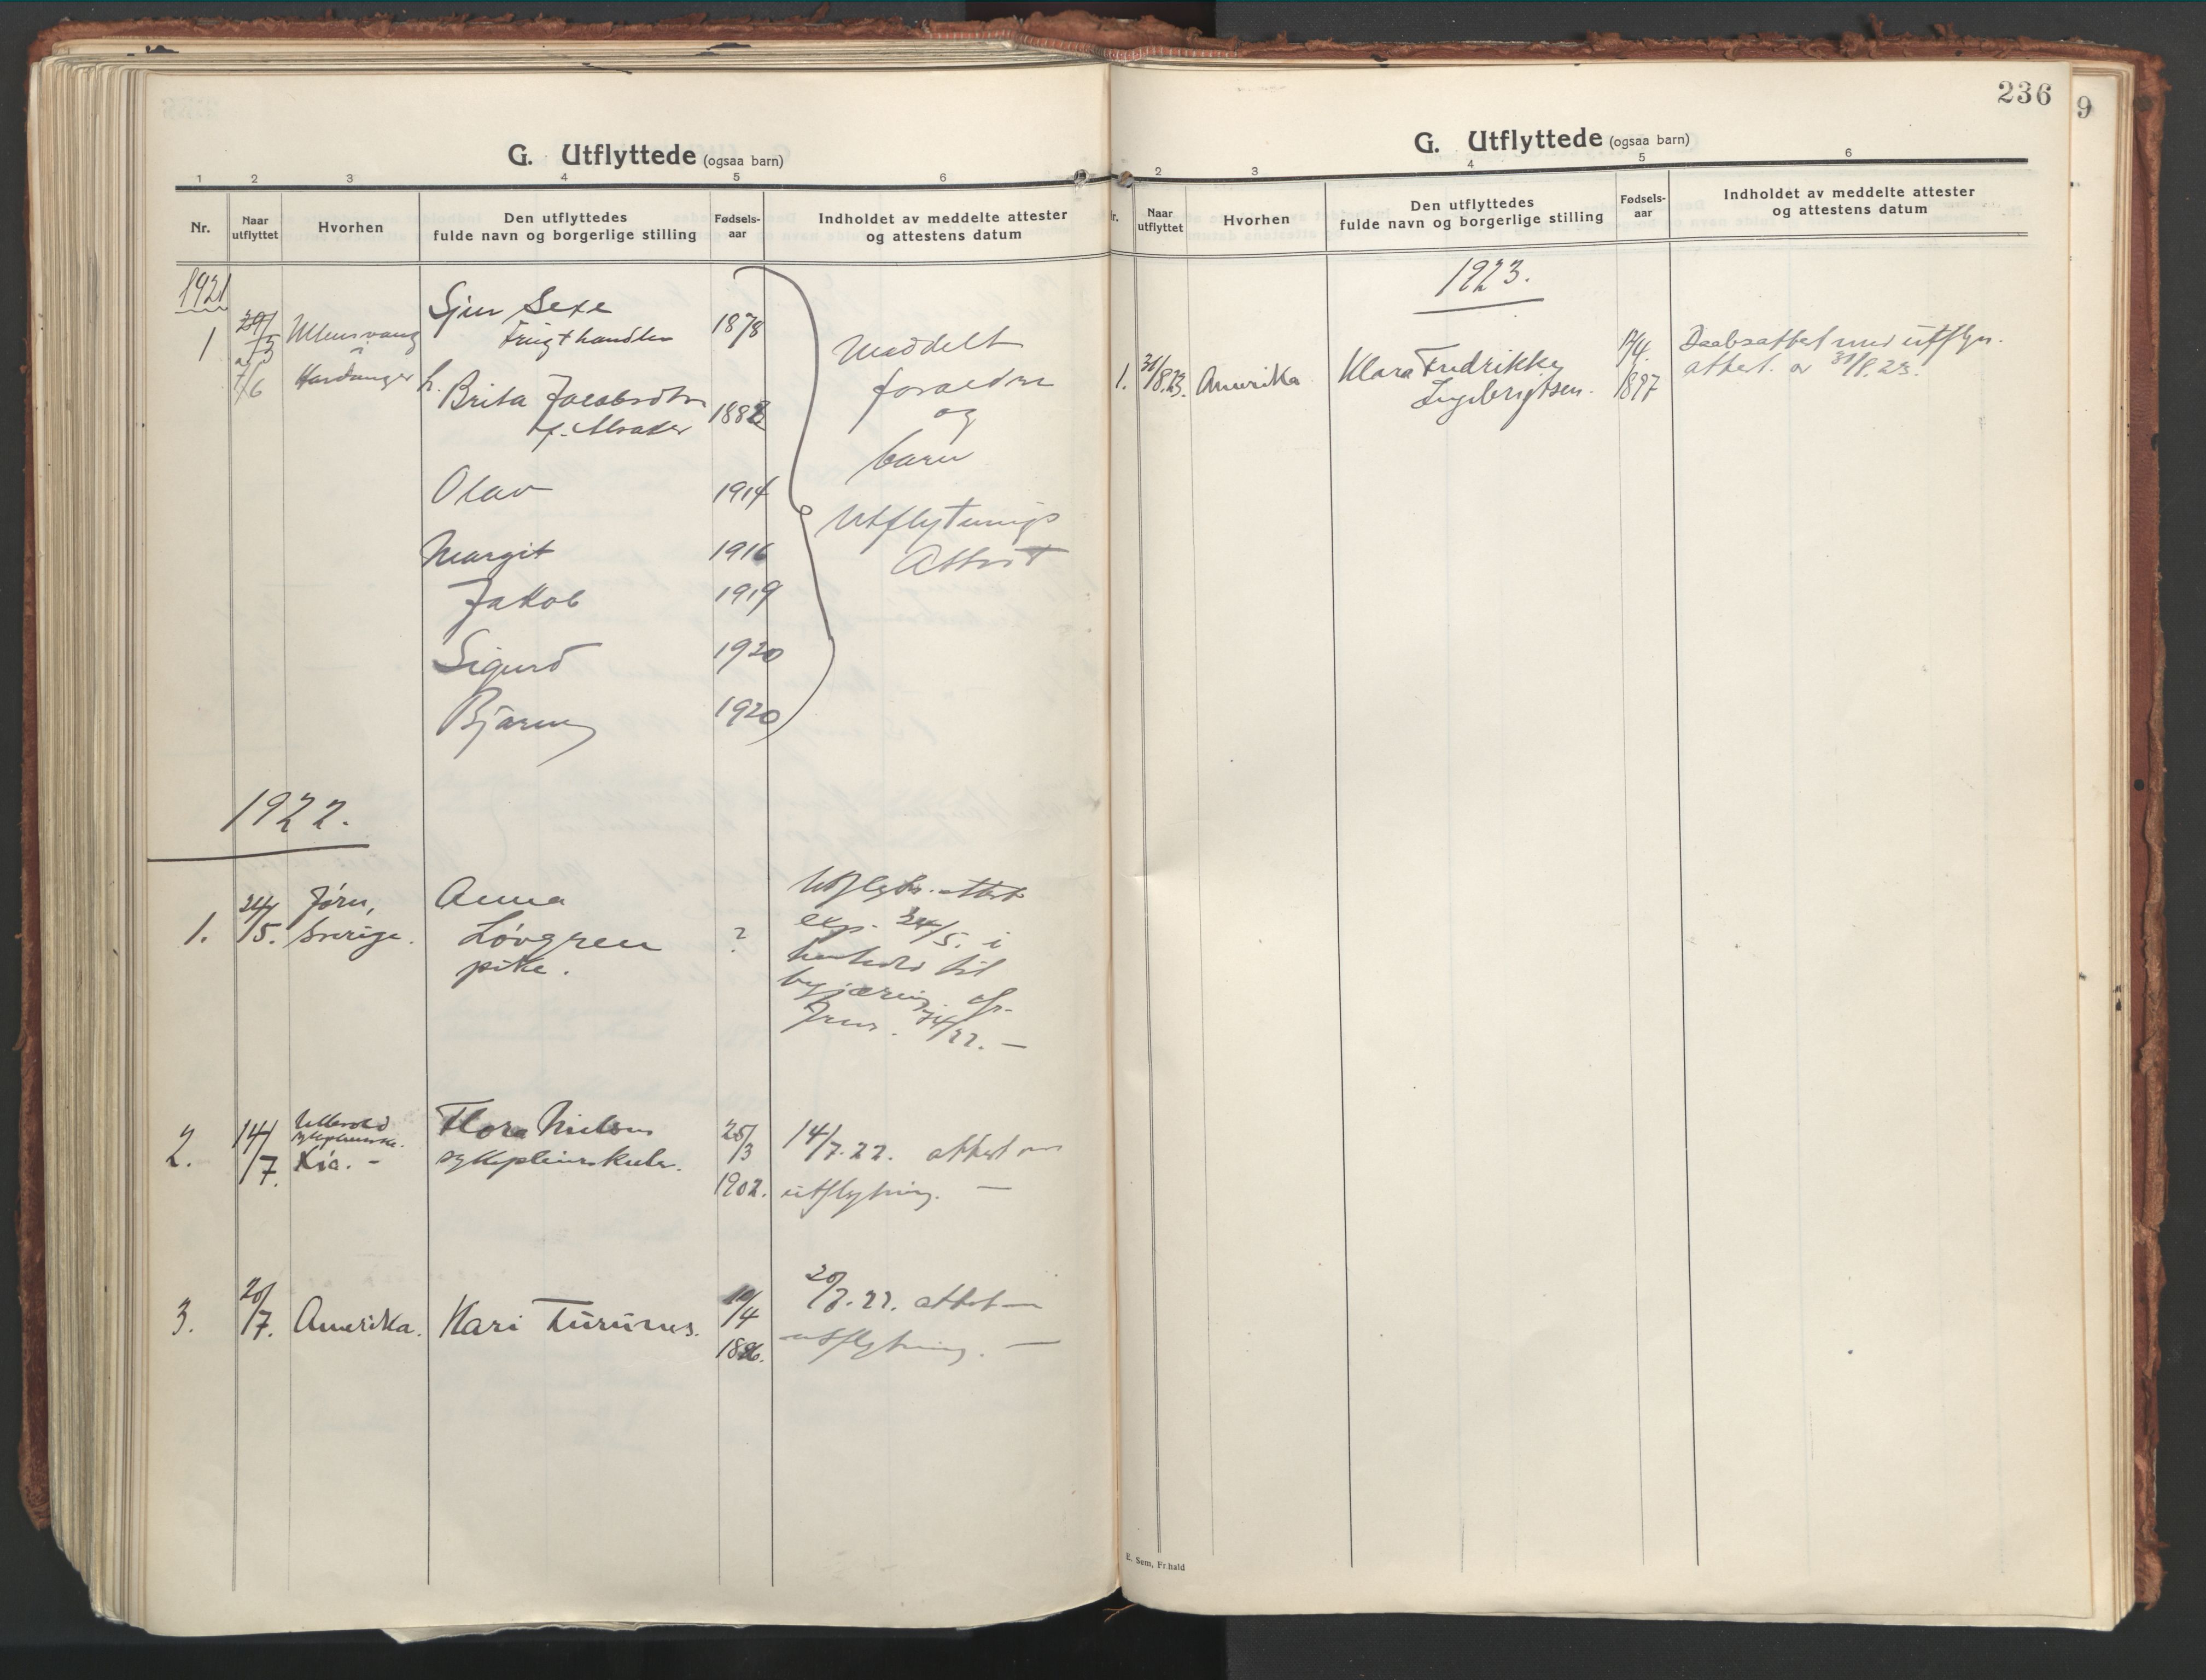 G. Utflyttede (ogsaa barn)
1 2 3 4 5 6
Nr. Naar utflyttet Hvorhen Den utflyttedes fulde navn og borgerlige stilling Fødsels-aar Indholdet av meddelte attester og attestens datum
1921
Sjur Sexe
1 Ullensvang 1878
i
7/6 Hardanger
h. Brita Jacobsdtr 1882
f. Alsaker
Meddelt
foraeldre
og
barn
Olav 1914
Utflytnings
Attest
Margit 1916
Jakob 1919
Sigurd 1920
Bjarne 1920
1922.
1. 24/5. Jørn, Sverige. Anna
Løvgren ?
pike.
Utflytn. attest
exp. 24/5. i
henhold til
begjæring
2. 14/7. Ullevold
Kra. - Flora Nielsen 25/3
1902.
14/7.22. attest om
utflytning. —
3. 20/7. Amerika. Kari 10/4
20/7.22. attest
utflytning. —
236
9
G. Utflyttede (ogsaa barn)
2 3 4 5 6
Nr. Naar utflyttet Hvorhen Den utflyttedes fulde navn og borgerlige stilling Fødsels-aar Indholdet av meddelte attester og attestens datum
1923.
1. 31/8.23. Amerika Klara Fredrikke
Ingebrigtsen. 1897
Daabsattest med utflyn.
attest. av 31/8.23.
E. Sem, Fr.hald